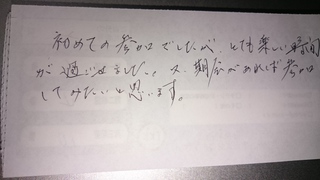 初めての参加でしたが、とても楽しい時間
が過ごせました。又、期会があれば参加
してみたいと思います。